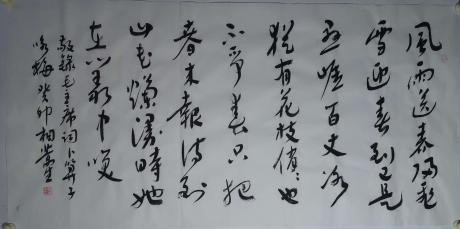 風雨送春歸飛
雪迎春到已是
懸崖百丈冰
猶有花枝俏〻也
不爭春只把
春來報待到
山花爛漫時她
在叢中笑
敬錄毛主席詞卜算子
咏梅癸卯